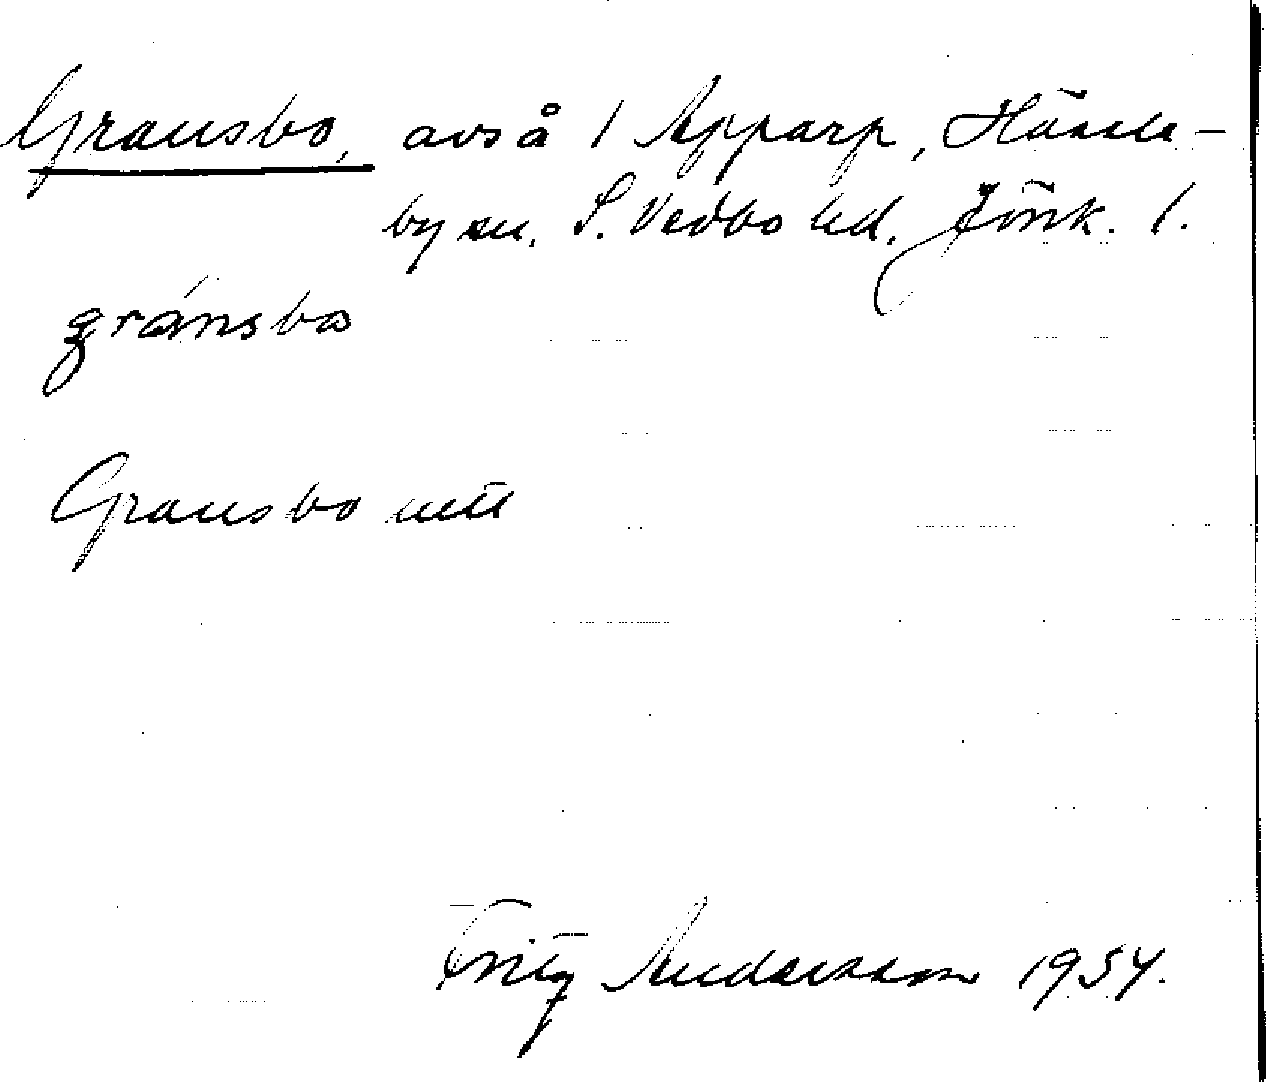 Gransbo, avs å 1 Apparp, Hässle-
by sn. S. Vedbo hd. Jönk. l.
gránsbo
Gransbo
Fritz Andersson 1954.